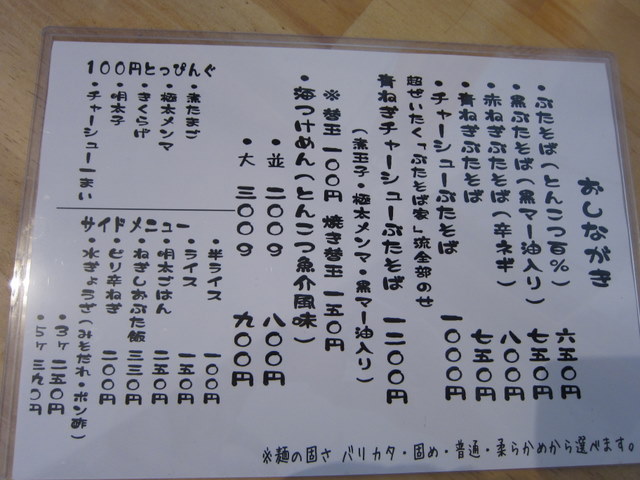 おしながき
・ぶたそば(とんこつ百%) 六五〇円
・黒ぶたそば(黒マー油入り) 七五〇円
・赤ねぎぶたそば(辛ネギ) 八〇〇円
・青ねぎぶたそば 七五〇円
・チャーシューぶたそば 一〇〇〇円
超ぜいたく「ぶたそば家」流全部のせ
青ねぎチャーシューぶたそば 一二〇〇円
(煮玉子・極太メンマ・黒マー油入り)
※ 替玉 一〇〇円 焼き替玉 一五〇円
・海つけめん(とんこつ魚介風味)
・並 二〇〇g 八〇〇円
・大 三〇〇g 九〇〇円
100円とっぴんぐ
・煮たまご
・極太メンマ
・きくらげ
・明太子
・チャーシュー一まい
サイドメニュー
・半ライス 一〇〇円
・ライス 一五〇円
・明太ごはん 二五〇円
・ねぎしおぶた飯 三三〇円
・ピリ辛ねぎ 二〇〇円
・水ぎょうざ(みそだれ・ポン酢)
・3ヶ 二五〇円
・5ヶ 三九〇円
※麺の固さ バリカタ・固め・普通・柔らかめから選べます。